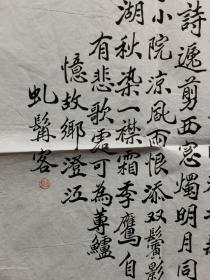 詩遞剪西窓燭明月同
小院涼風雨恨添双鬢影
湖秋染一襟霜季鷹自
有悲歌處可為蓴鱸
憶故鄉澄江
虬髯客